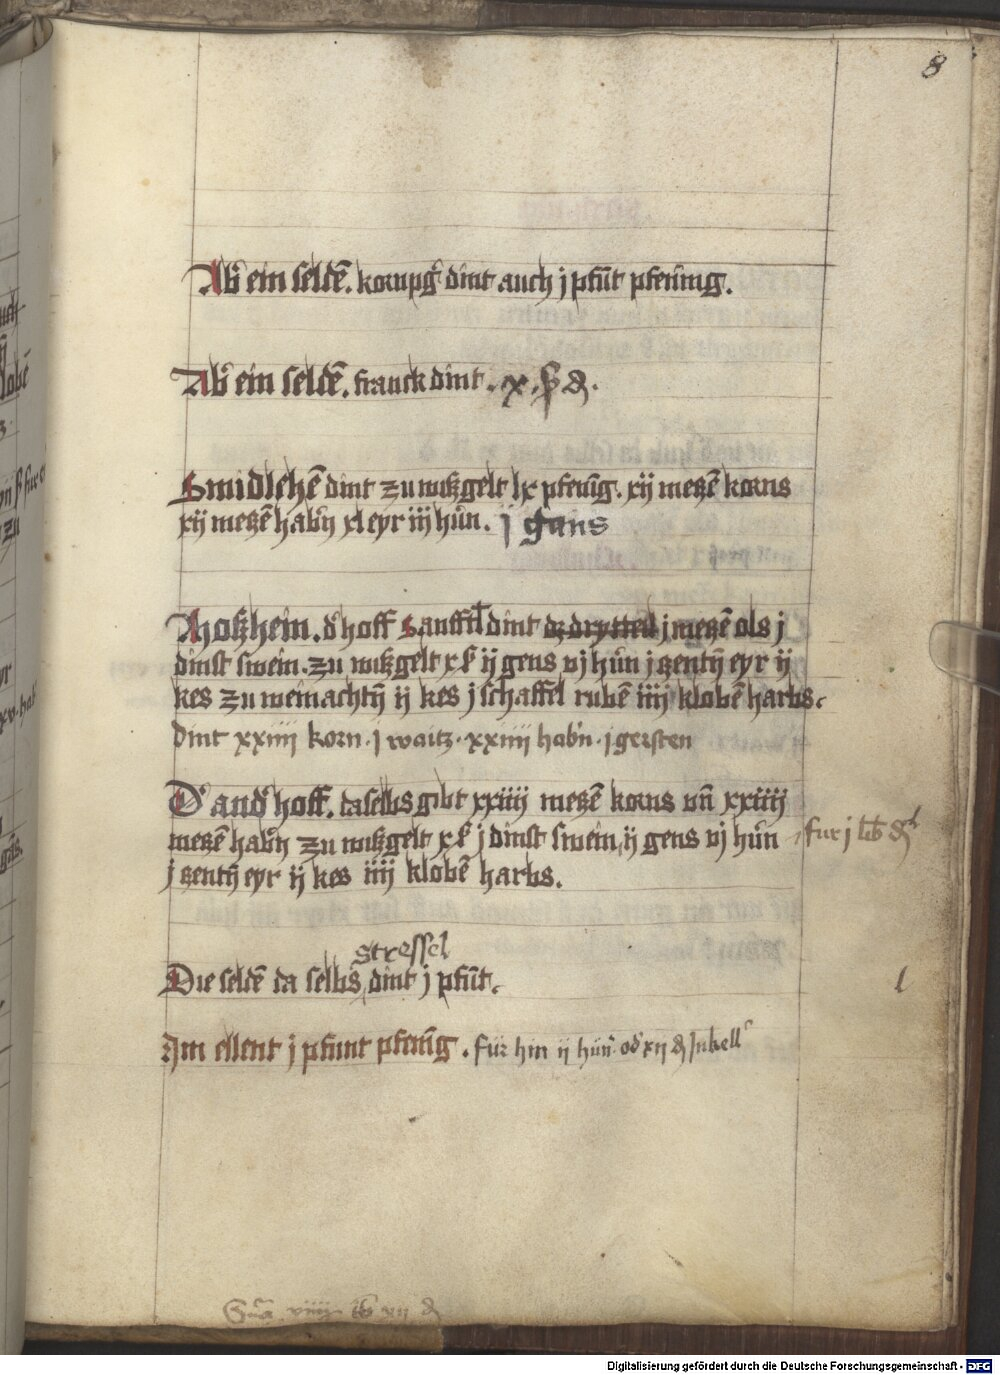 8
Ab' ein seldē. kornpg' dint auch j pfūt pfenīg.
Ab' ein seldē. franck dint . x . ß ₰.
Smidlehē dint zu wißgelt lx pfenīg. xij meczē korns
xij meczē hab'n xl eyr iij hūn. j gans
Aholzheim. d' hoff dint j meczē ols j
dinst swein. zu wißgelt xl ij gens vj hūn j zentn̄ eyr ij
kes zu weinachtn̄ ij kes j schaffel rubē iiij klobē harbs.
dint xxiiij korn . j waitz . xxiiij hab'n . j gersten
D' and' hoff. daselbs gibt xxiiij meczē korns vn̄ xxiiij
meczē hab'n zu wißgelt xl j dinst swein, ij gens vj hūn fur j lb ₰
j zentn̄ eyr ij kes iiij klobē harbs.
stressel
Die seldē da selbs dint j pfūt.
l
Im ellent j pfunt pfenīg . fur hin ij hūn' od' xij ₰
xij ₰
Digitalisierung gefördert durch die Deutsche Forschungsgemeinschaft - DFG